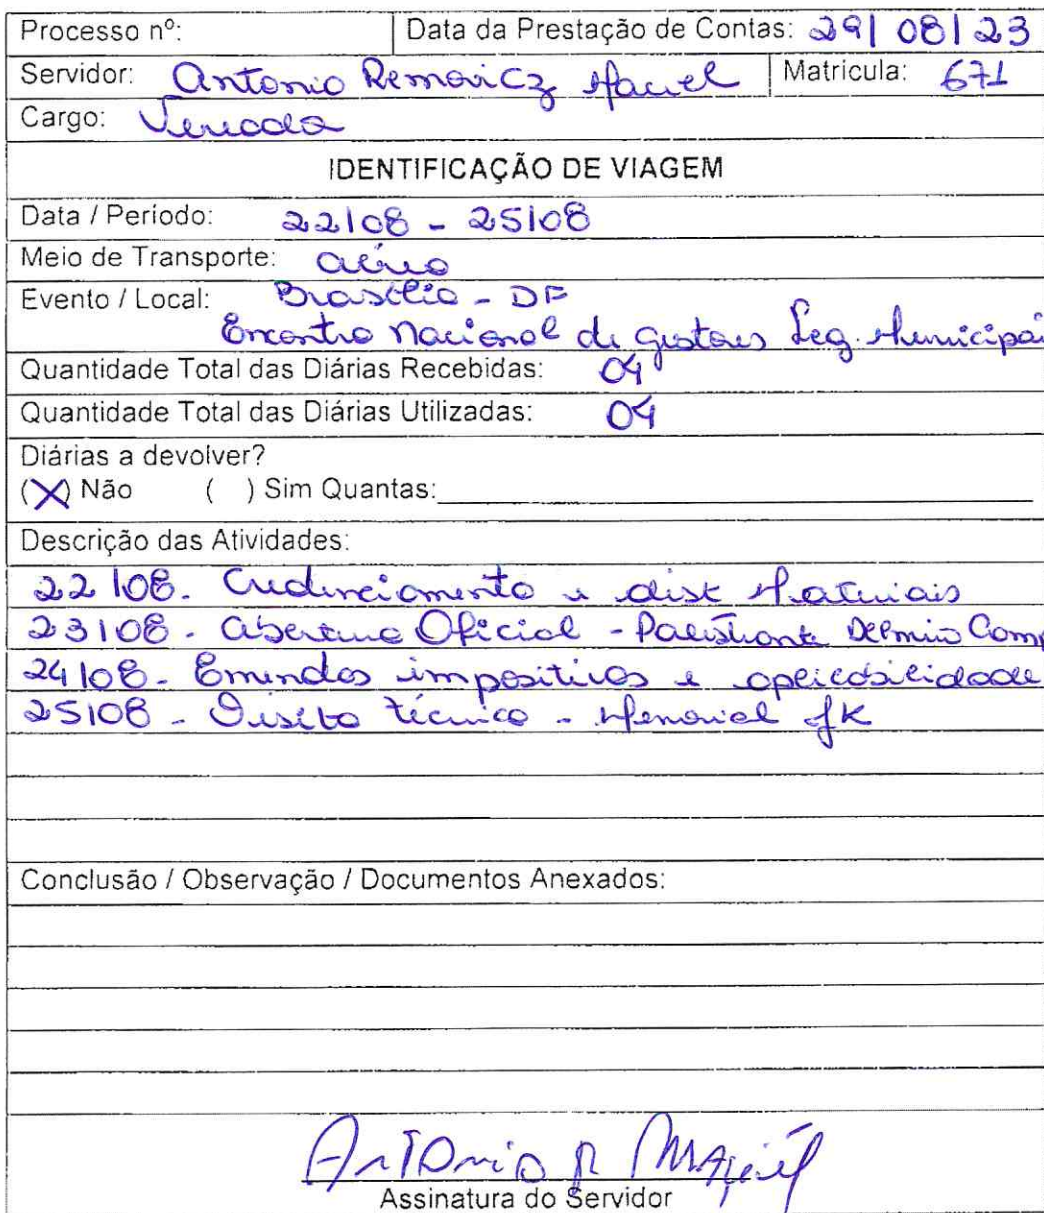 Processo nº: Data da Prestação de Contas: 29/08/23
Servidor: Antonio Removicz Maciel Matricula: 671
Cargo: Vereador
IDENTIFICAÇÃO DE VIAGEM
Data / Período: 22/08 - 25/08
Meio de Transporte: aéreo
Evento / Local: Brasília - DF
Encontro Nacional de gestores Leg. Municipai
Quantidade Total das Diárias Recebidas: 04
Quantidade Total das Diárias Utilizadas: 04
Diárias a devolver?
(X) Não ( ) Sim Quantas:
Descrição das Atividades:
22/08. Credenciamento e dist Materiais
23/08. Abertura Oficial - Palestrante Delmiro Camp
24/08. Emendas impositivas e aplicabilidade
25/08 - Visita técnica - Memorial JK
Conclusão / Observação / Documentos Anexados:
Antonio R Maciel
Assinatura do Servidor